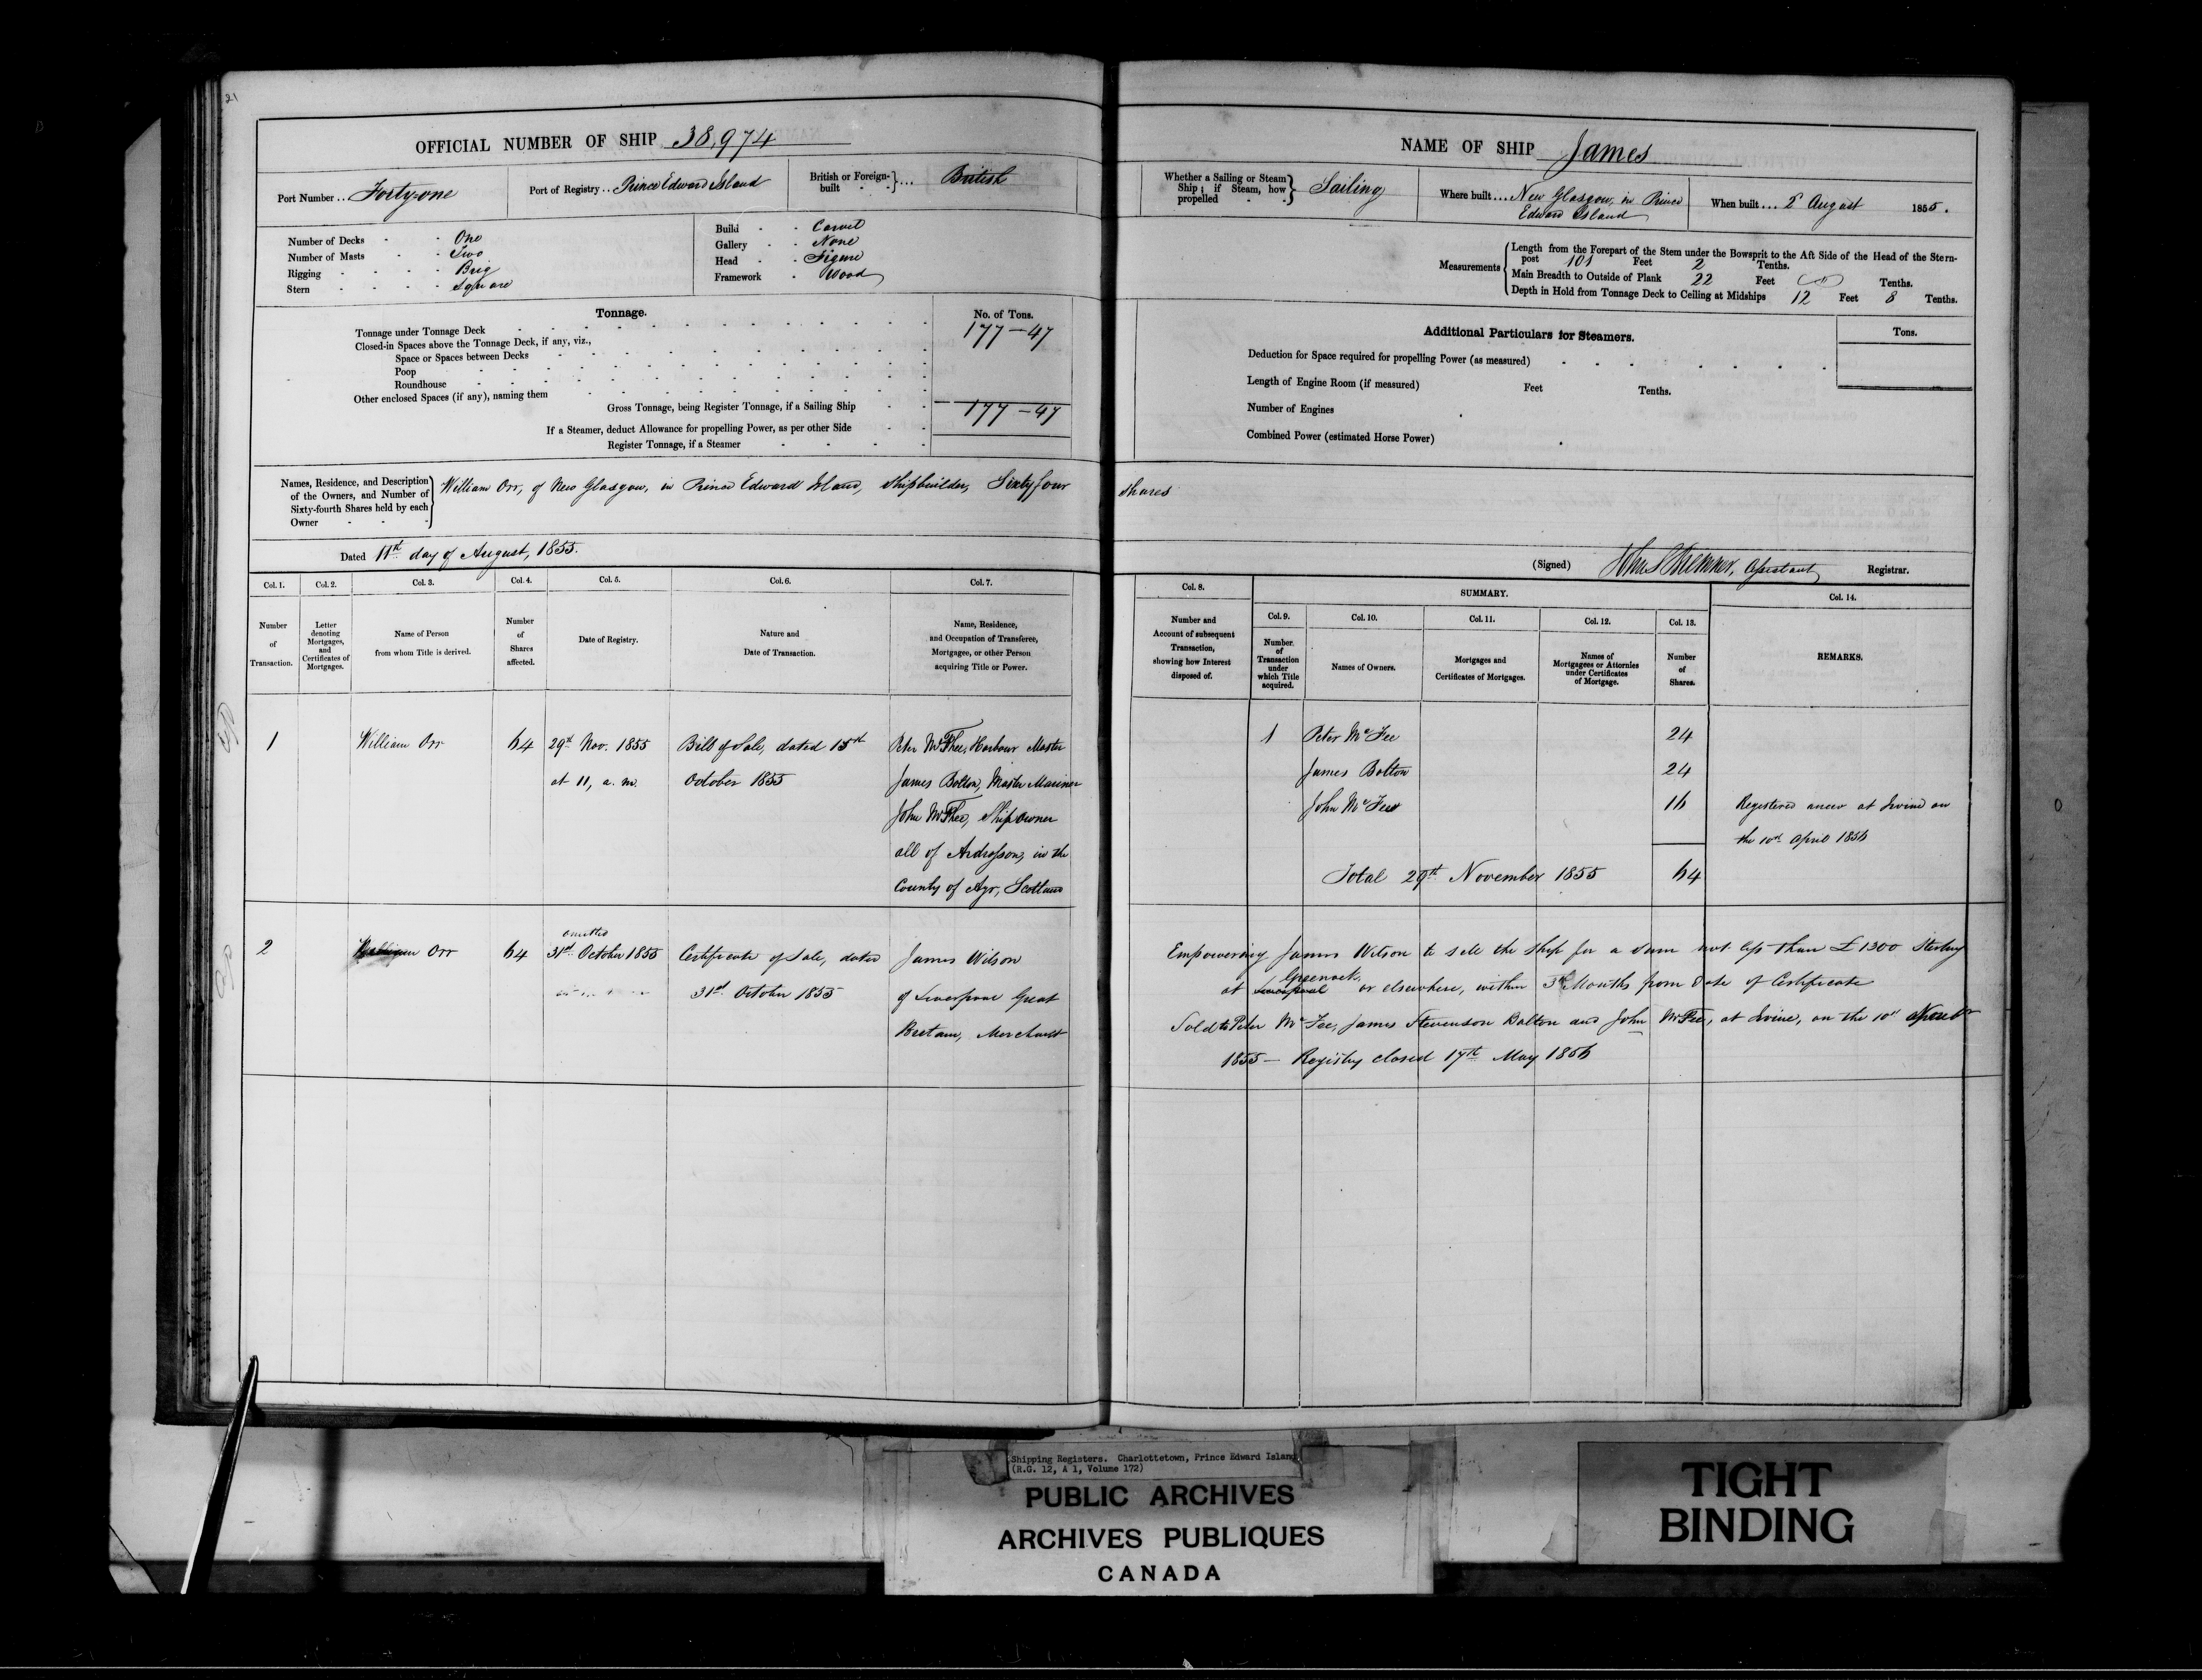 21
OFFICIAL NUMBER OF SHIP 38,974
Port Number .. Forty-one
Port of Registry .. Prince Edward Island
British or Foreign-built - - } ... British
Number of Decks - - One
Number of Masts - - Two
Rigging - - - - Brig
Stern - - - - Square
Build - - Carvel
Gallery - - None
Head - - Figure
Framework - Wood
Tonnage.
No. of Tons.
Tonnage under Tonnage Deck 177-47
Closed-in Spaces above the Tonnage Deck, if any, viz.,
Space or Spaces between Decks
Poop
Roundhouse
Other enclosed Spaces (if any), naming them
Gross Tonnage, being Register Tonnage, if a Sailing Ship 177-47
If a Steamer, deduct Allowance for propelling Power, as per other Side
Register Tonnage, if a Steamer
NAME OF SHIP James
Whether a Sailing or Steam Ship; if Steam, how propelled } Sailing
Where built ... New Glasgow, in Prince
Edward Island
When built ... 2 August 1855.
Measurements
Length from the Forepart of the Stem under the Bowsprit to the Aft Side of the Head of the Stern-
post 101 Feet 2 Tenths.
Main Breadth to Outside of Plank 22 Feet Tenths.
Depth in Hold from Tonnage Deck to Ceiling at Midships 12 Feet 8 Tenths.
Additional Particulars for Steamers.
Tons.
Deduction for Space required for propelling Power (as measured)
Length of Engine Room (if measured) Feet Tenths.
Number of Engines
Combined Power (estimated Horse Power)
Names, Residence, and Description
of the Owners, and Number of
Sixty-fourth Shares held by each
Owner
William Orr, of New Glasgow, in Prince Edward Island, Shipbuilder, Sixty four shares
Dated 11th day of August, 1855.
(Signed) Assistant Registrar.
Col. 1. Col. 2. Col. 3. Col. 4. Col. 5. Col. 6. Col. 7.
Number of Transaction.
Letter denoting Mortgages, and Certificates of Mortgages.
Name of Person from whom Title is derived.
Number of Shares affected.
Date of Registry.
Nature and Date of Transaction.
Name, Residence, and Occupation of Transferee, Mortgagee, or other Person acquiring Title or Power.
Col. 8.
Number and Account of subsequent Transaction, showing how Interest disposed of.
SUMMARY.
Col. 9. Col. 10. Col. 11. Col. 12. Col. 13.
Number of Transaction under which Title acquired.
Names of Owners.
Mortgages and Certificates of Mortgages.
Names of Mortgagees or Attornies under Certificates of Mortgage.
Number of Shares.
Col. 14.
REMARKS.
1 William Orr 64 29th Nov. 1855 Bill of Sale, dated 15th Peter McPhee, Harbour Master
at 11, a. m. October 1855 James Bolton, Master Mariner
John McPhee, Ship owner
all of Ardrossan, in the
County of Ayr, Scotland
1 Peter McFee 24
James Bolton 24
John McFee 16 Registered anew at Irvine on
the 10th April 1856
Total 29th November 1855 64
omitted
2 William Orr 64 31st October 1855 Certificate of Sale, dated James Wilson
31st October 1855 of Liverpool Great
Britain, Merchant
Empowering James Wilson to sell the ship for a sum not less than £1300 Sterling
Greenock
at Liverpool or elsewhere, within 3 Months from date of Certificate
Sold to Peter McFee, James Stevenson Bolton and John McFee, at Irvine, on the 10th
1855 — Registry closed 17th May 1856
Shipping Registers. Charlottetown, Prince Edward Island
(R.G. 12, A 1, Volume 172)
PUBLIC ARCHIVES
ARCHIVES PUBLIQUES
CANADA
TIGHT
BINDING